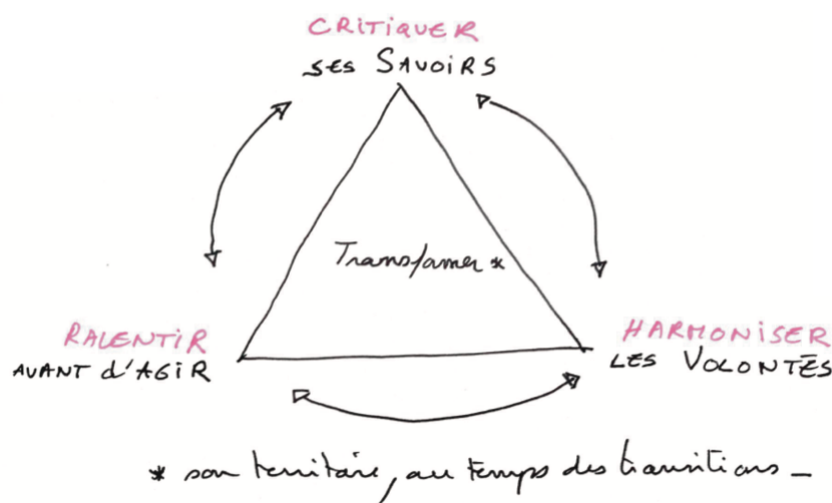 CRITIQUER
SES SAVOIRS
Transformer *
RALENTIR
AVANT d'AGIR
HARMONISER
LES VOLONTÉS
* son territoire, au temps des transitions